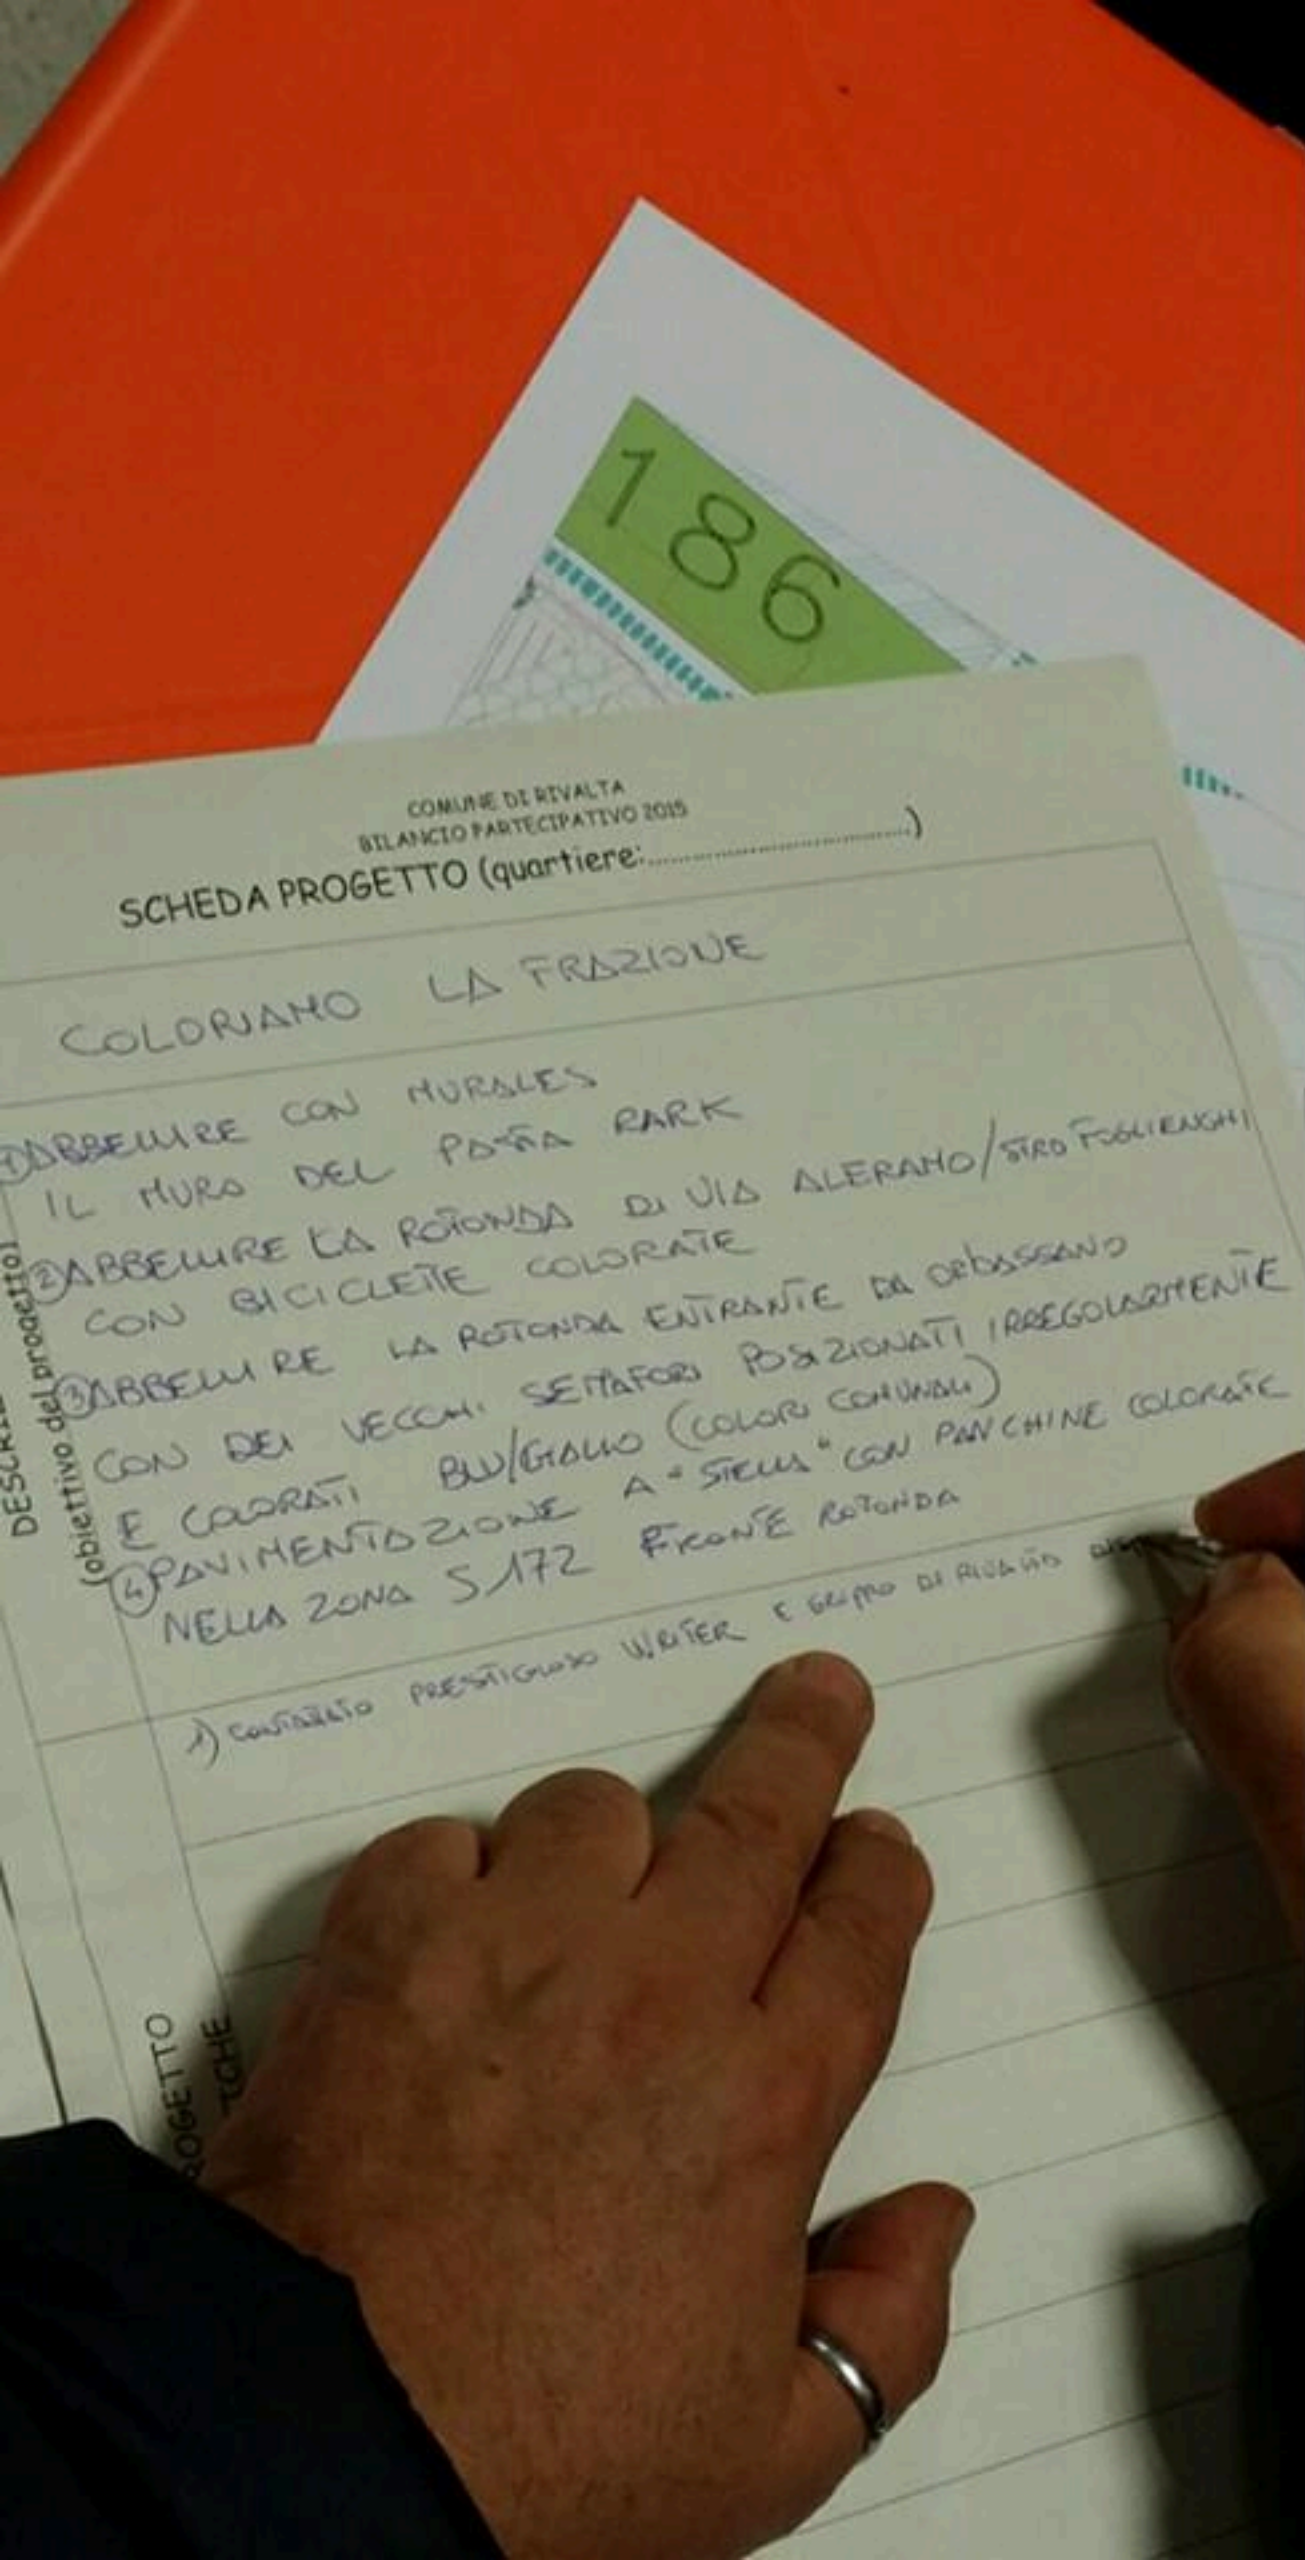 186
COMUNE DI RIVALTA
BILANCIO PARTECIPATIVO 2015
SCHEDA PROGETTO (quartiere:....................................)
COLORIAMO LA FRAZIONE
(obiettivo del progetto)
1) ABBELLIRE CON MURALES
IL MURO DEL PASTA PARK
2) ABBELLIRE LA ROTONDA DI VIA ALERAMO/
CON BICICLETTE COLORATE
3) ABBELLIRE LA ROTONDA ENTRANTE DA ORBASSANO
CON DEI VECCHI SEMAFORI POSIZIONATI IRREGOLARMENTE
E COLORATI BLU/GIALLO (COLORI COMUNALI)
4) PAVIMENTAZIONE A "STELLA" CON PANCHINE COLORATE
NELLA ZONA S172 FRONTE ROTONDA
1) CONTATTATO PRESTIGIOSO WRITER E GRUPPO DI RIVALTA
OGETTO